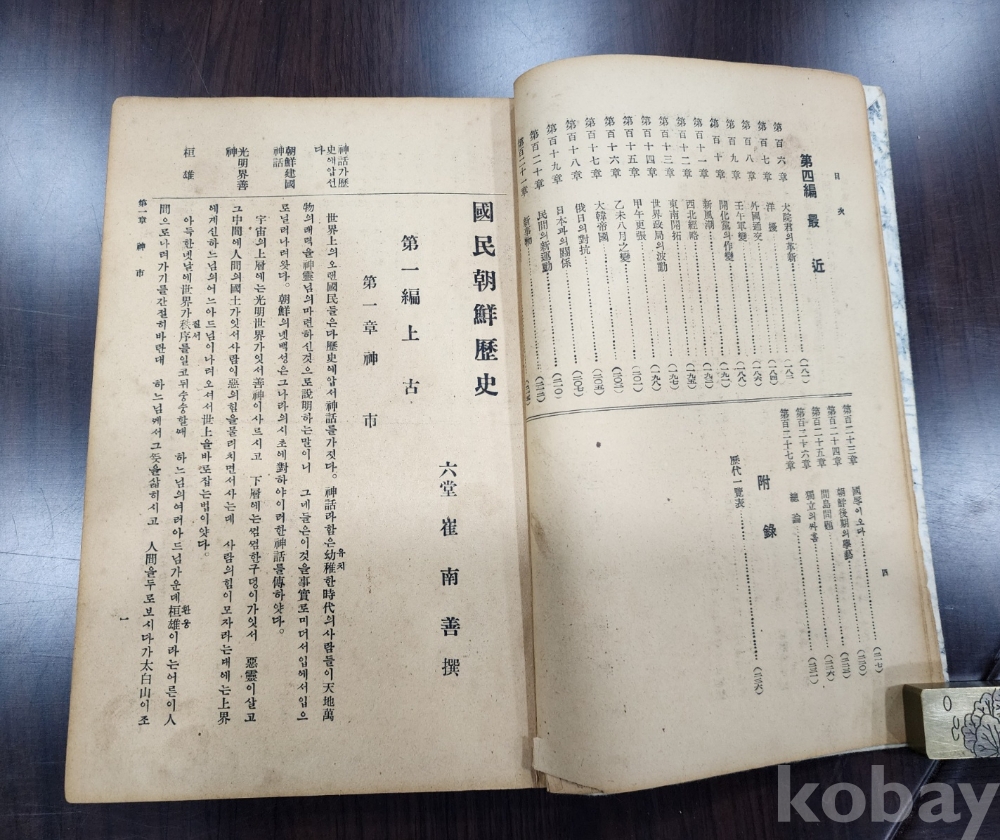 目次
四
第四編 最近
第百六章 大院君의革新
第百七章 洋擾
第百八章 外國通交
第百九章 壬午軍變
第百十章 開化黨의作變
第百十一章 新風潮
第百十二章 西北經略
第百十三章 東南開拓
第百十四章 世界政局의波動
第百十五章 甲午更張
第百十六章 乙未八月之變
第百十七章 大韓帝國
第百十八章 俄日의對抗
第百十九章 日本과의關係
第百二十章 民間의新運動
第百二十一章
第百二十三章 國學이오다
第百二十四章 朝鮮後期의學藝
第百二十五章 間島問題
第百二十六章 獨立의싸홈
第百二十七章 總論
附錄
歷代一覽表
國民朝鮮歷史
六堂 崔南善 撰
第一編 上古
第一章 神市
神話가歷史에압선다
世界上의오랜國民들은다歷史에압서神話를가젓다。神話라함은幼稚한時代의사람들이天地萬
유치
物의래력을神靈님의마련하신것으로說明하는말이니 그네들은이것을事實로미더서입에서입으
로닐러나려왓다。朝鮮의녯백성은그나라의시초에對하야이러한神話를傳하얏다。
朝鮮建國神話
宇宙의上層에는光明世界가잇서善神이사르시고 下層에는컴컴한구덩이가잇서 惡靈이살고
光明界善神
그中間에人間의國土가잇서사람이惡의힘을물리치면서사는데 사람의힘이모자라는대에는上界
에게신하느님의어느아드님이나려오셔서世上을바로잡는법이얏다。
아득한녯날에世界가秩序를일코뒤숭숭할때 하느님의여러아드님가운데桓雄이라는어른이人
질서
환웅
桓雄
間으로나려가기를간절히바란대 하느님께서그뜻을삷히시고 人間을두로보시다가太白山이조
第一章 神市
一
kobay